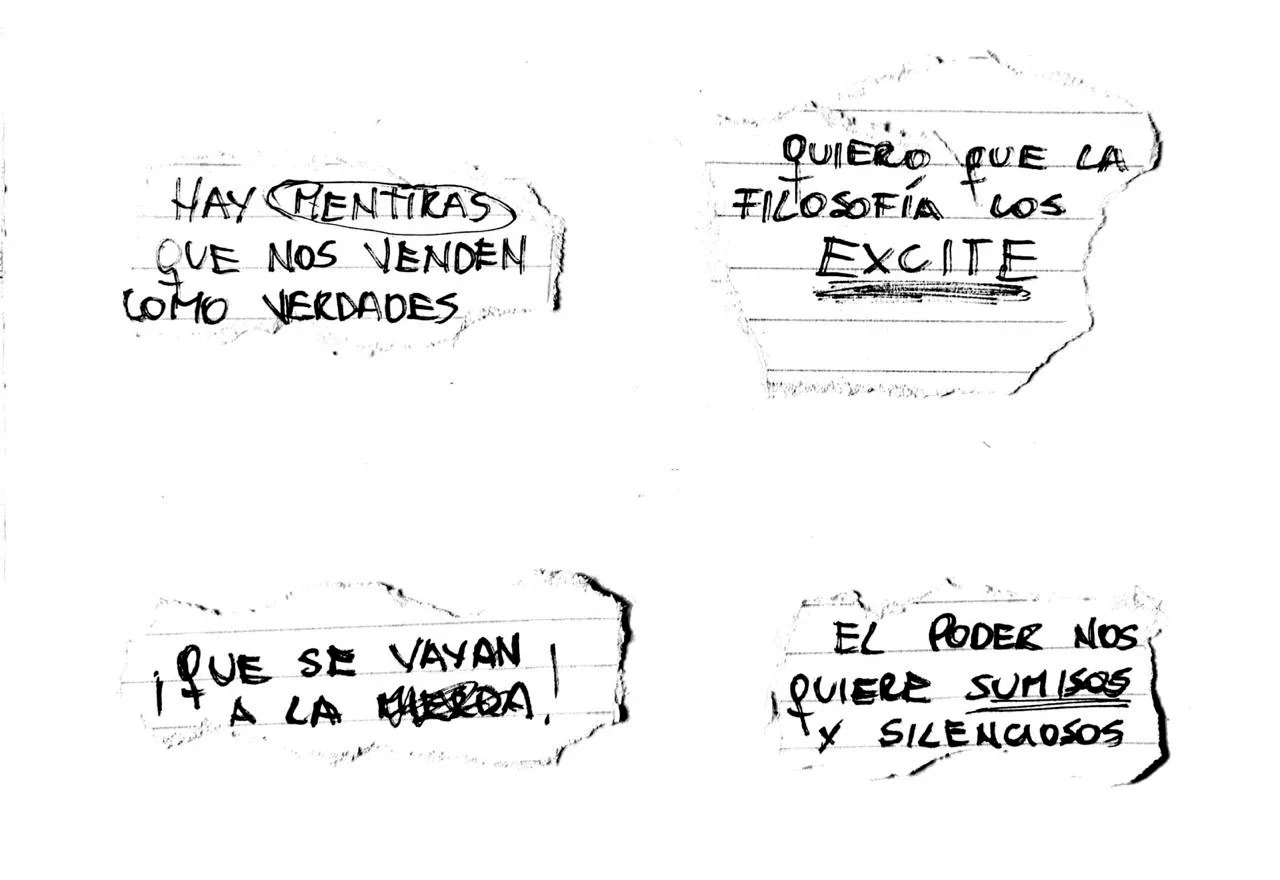 HAY MENTIRAS
QUE NOS VENDEN
COMO VERDADES
QUIERO QUE LA
FILOSOFÍA LOS
EXCITE
¡QUE SE VAYAN
A LA MIERDA!
EL PODER NOS
QUIERE SUMISOS
Y SILENCIOSOS